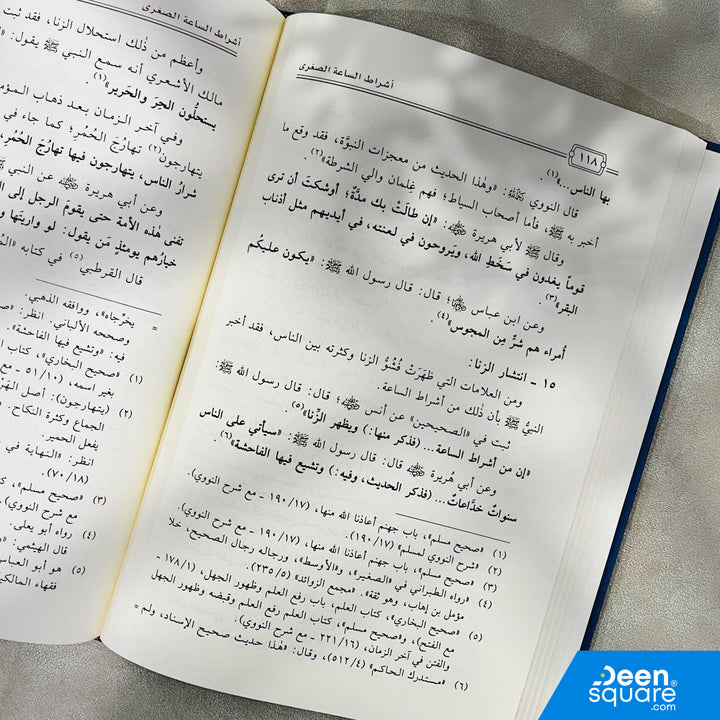 أشراط الساعة الصغرى
١١٨
بها الناس...»(١).
قال النووي ﵀: «وهٰذا الحديث من معجزات النبوَّة، فقد وقع ما
أخبر به ﷺ، فأما أصحاب السياط؛ فهم غِلمان والي الشرطة»(٢).
وقال ﷺ لأبي هريرة ﵁: «إن طالَتْ بك مدَّةٌ؛ أوشكتَ أن ترى
قوماً يغدون في سَخَطِ الله، ويَروحون في لعنته، في أيديهم مثل أذناب
البقر»(٣).
وعن ابن عباس ﵄؛ قال: قال رسول الله ﷺ: «يكون عليكُم
أُمراء هم شرٌّ مِن المجوس»(٤).
١٥ ـ انتشار الزنا:
ومن العلامات التي ظهَرَتْ فُشُوُّ الزنا وكثرته بين الناس، فقد أخبر
النبيُّ ﷺ بأن ذٰلك من أشراط الساعة.
ثبت في «الصحيحين» عن أنس ﵁؛ قال: قال رسول الله ﷺ:
«إن من أشراط الساعة... (فذكر منها:) ويظهر الزِّنا»(٥).
وعن أبي هُريرة ﵁ قال: قال رسول الله ﷺ: «سيأتي على الناس
سنواتٌ خدَّاعاتٌ... (فذكر الحديث، وفيه:) وتشيع فيها الفاحشة»(٦).
(١) «صحيح مسلم»، باب جهنم أعاذنا الله منها، (١٧/ ١٩٠ ـ مع شرح النووي).
(٢) «شرح النووي لمسلم» (١٧/ ١٩٠).
(٣) «صحيح مسلم»، باب جهنم أعاذنا الله منها، (١٧/ ١٩٠ ـ مع شرح النووي).
(٤) «رواه الطبراني في «الصغير»، و«الأوسط»، ورجاله رجال الصحيح، خلا
مؤمل بن إهاب، وهو ثقة». «مجمع الزوائد» (٥/ ٢٣٥).
(٥) «صحيح البخاري»، كتاب العلم، باب رفع العلم وظهور الجهل، (١/ ١٧٨ ـ
مع الفتح)، و«صحيح مسلم»، كتاب العلم رفع العلم وقبضه وظهور الجهل
والفتن في آخر الزمان، (١٦/ ٢٢١ ـ مع شرح النووي).
(٦) «مستدرك الحاكم» (٤/ ٥١٢)، وقال: «هٰذا حديث صحيح الإسناد، ولم =
أشراط الساعة الصغرى
وأعظم من ذٰلك استحلال الزنا، فقد ثبت
مالك الأشعري أنه سمع النبي ﷺ يقول:
يستحلُّون الحِرَ والحَرير»(١).
وفي آخر الزمان بعد ذهاب المؤمن
يتهارجون(٢) تهارُج الحُمُر؛ كما جاء في
شرارُ الناس، يتهارجون فيها تهارُجَ الحُمُر،
وعن أبي هريرة ﵁ عن النبي
تفنى هٰذه الأمة حتى يقومَ الرجل إلى ال
خيارُهم يومئذٍ مَن يقول: لو واريتَها و
قال القرطبي(٥) في كتابه
= يخرِّجاه»، ووافقه الذهبي.
وصححه الألباني. انظر: «صح
فيه: «وتشيع فيها الفاحشة».
(١) «صحيح البخاري»، كتاب
بغير اسمه، (١٠/ ٥١ ـ م
(٢) (يتهارجون): أصل الهَرْ
الجماع وكثرة النكاح.
بفعل الحمير.
انظر: «النهاية في
(١٨/ ٧٠).
(٣) «صحيح مسلم»،
مع شرح النوو
(٤) رواه أبو يعلى.
قال الهيثمي:
(٥) هو أبو العباس
فقهاء المالكي
Deen
square
.com